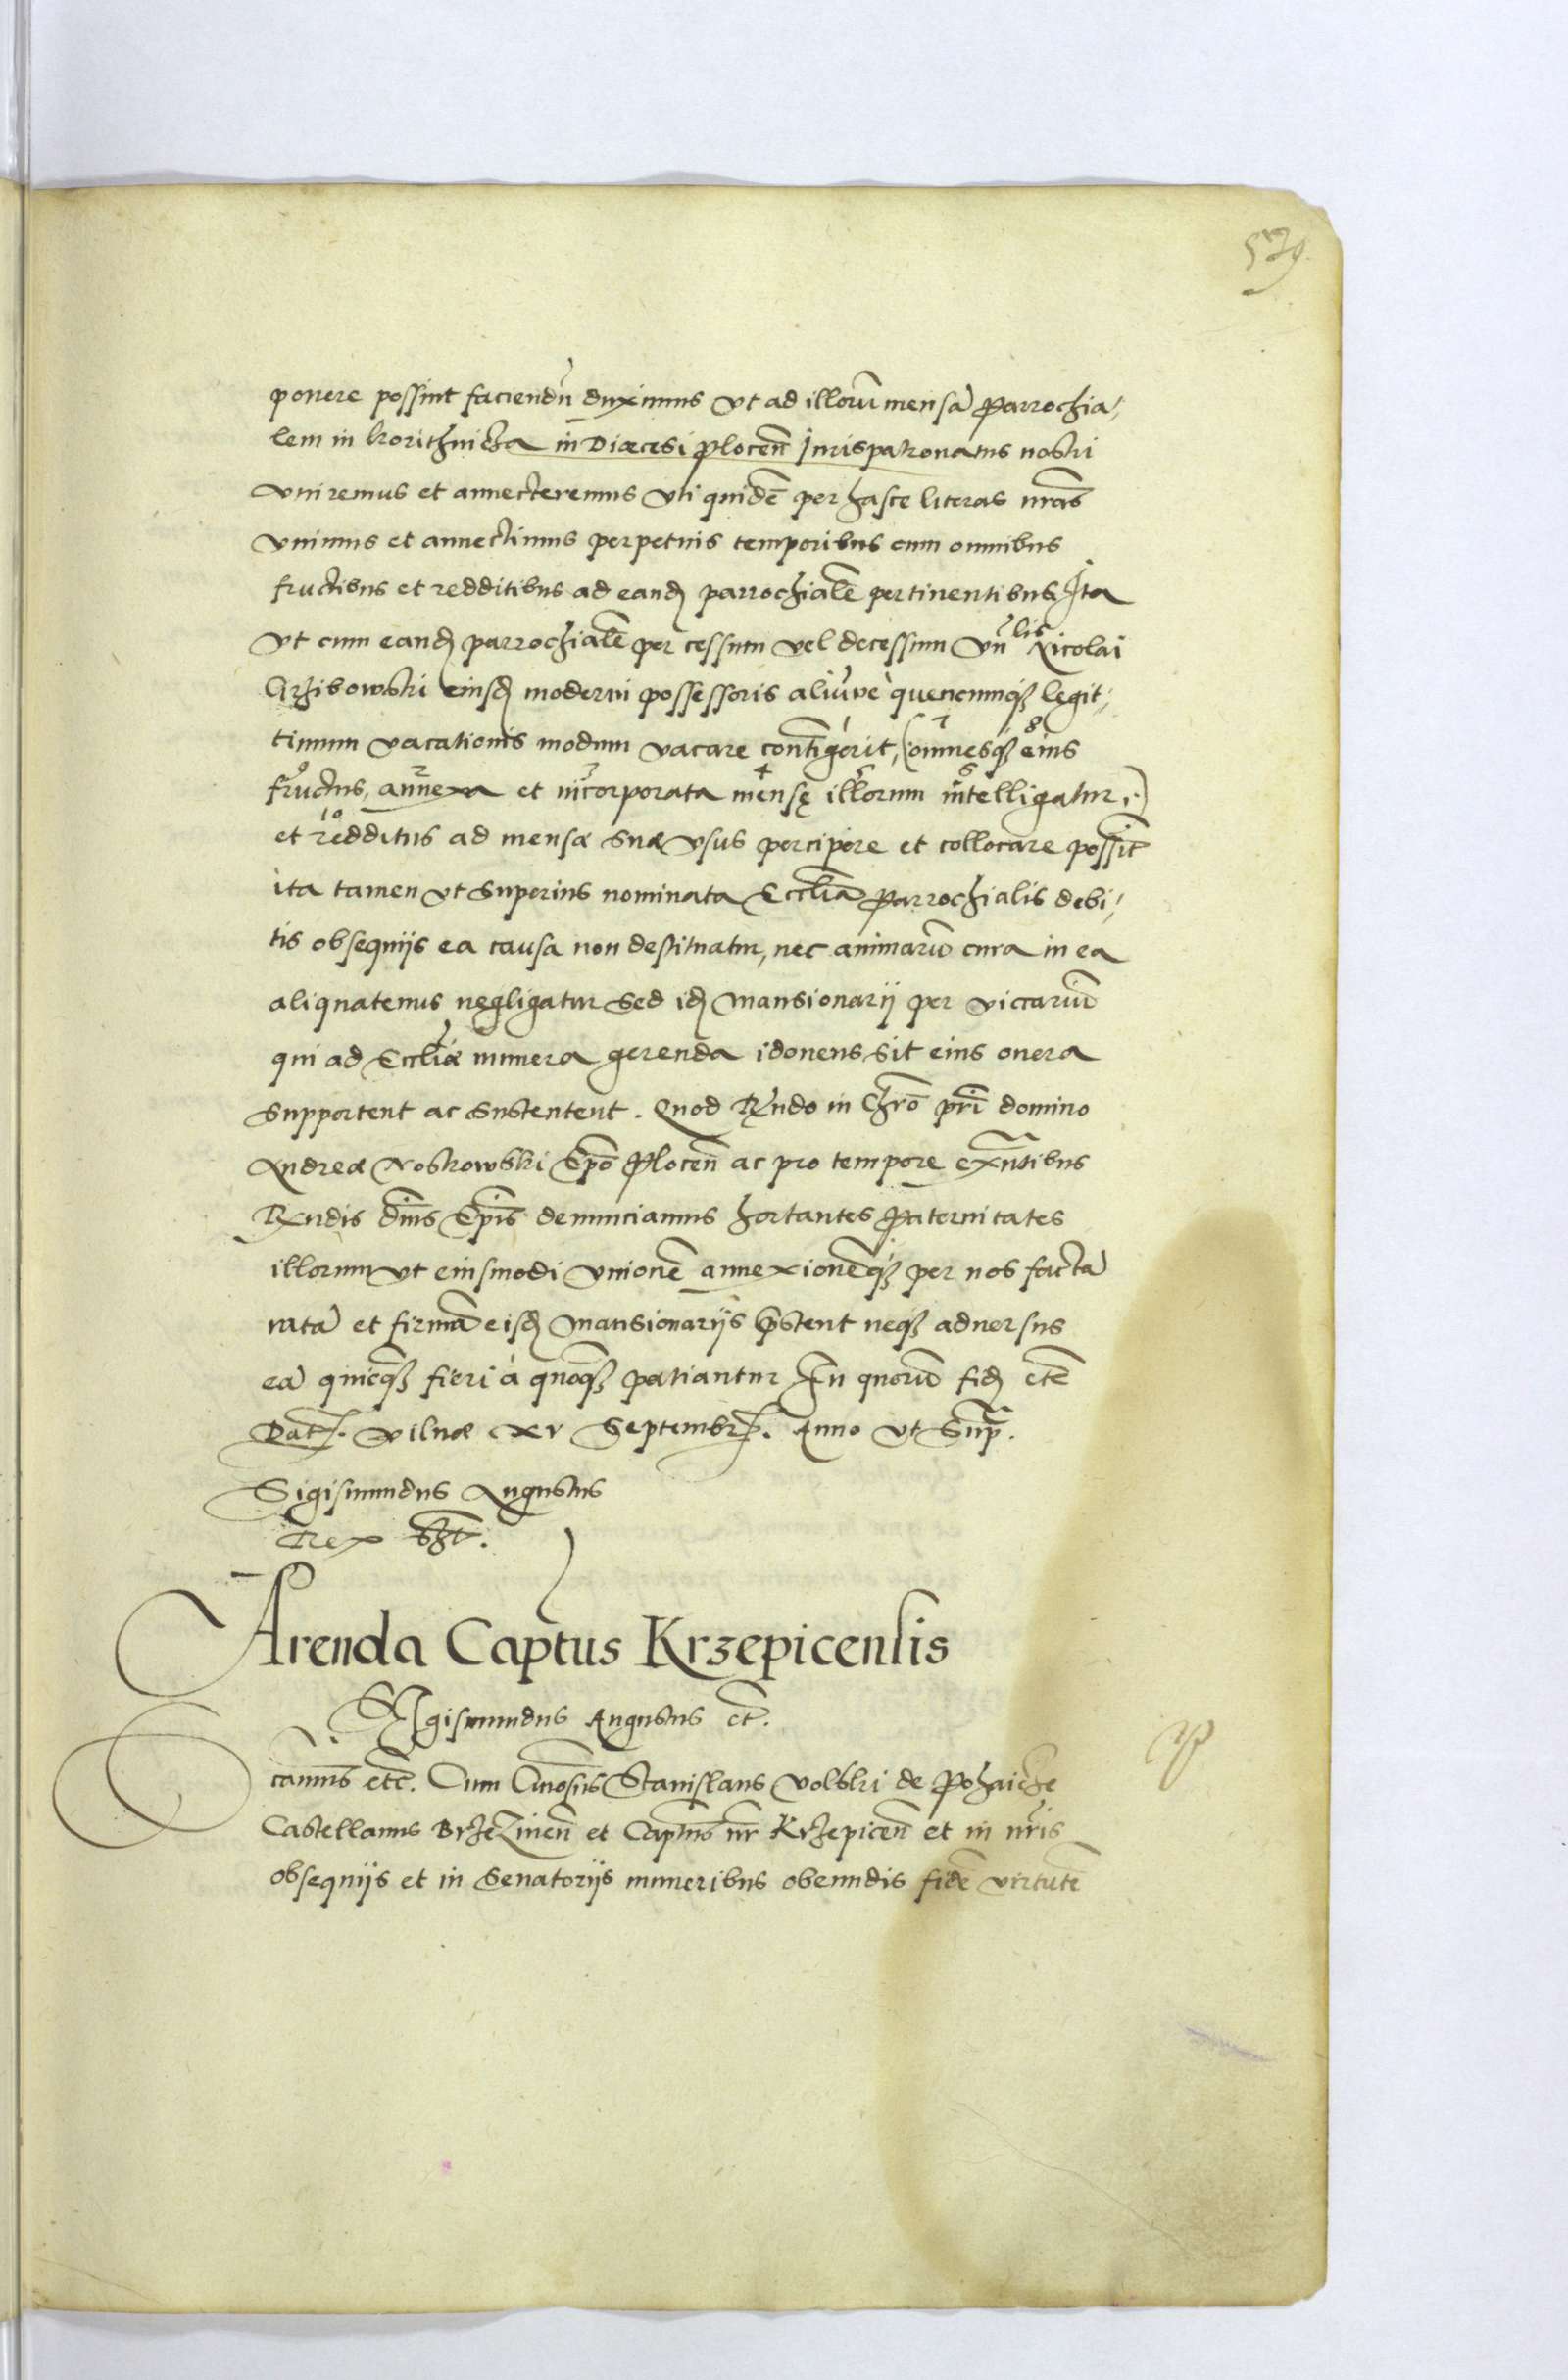 579.
ponere possint faciendū duximus Vt ad illorū mensā Parrochia,,
lem in korithnicza in Diœcesi Plocen̄ Jurispatronatus nostri
Vniremus et annecteremus Vti quidē per hasce literas nr̄as
Vnimus et annectimus perpetuis temporibus cum omnibus
fructibus et redditibus ad eandȩ parrochialē pertinentibus Ita
Vt cum eandȩ parrochialē per cessum vel decessum Vn̄ lis Nicolai
Grzibowski eiusdȩ moderni possessoris aliūve quencumqꝫ legit,,
timum vacationis modum vacare contigerit, (omnesqꝫ eius
fructus, annexa et incorporata mensę illorum intelligatur,)
et redditus ad mensæ suæ Vsus percipere et collocare possīt
ita tamen Vt superius nominata Eccl̄ia Parrochialis debi,,
tis obsequijs ea causa non destituatur, nec animarū cura in ea
aliquatenus negligatur Sed idȩ Mansionarij per viccariū
qui ad Eccl̄iæ munera gerenda idoneus sit eius onera
Supportent ac sustentent. Quod Rn̄do in Chr̄o pr̄i domino
Andreæ Noskowski Ep̄o Plocen̄ ac pro tempore ex̄ntibus
Rn̄dis dn̄is Ep̄is denunciamus hortantes Paternitates
illorum Vt eiusmodi Vnionē annexionēqꝫ per nos factā
ratā et firmā eisdȩ Mansionarijs p̄stent neqꝫ aduersus
eā quicqꝫ fieri à quoqꝫ patiantur In quorū fidȩ etc̄
Dat. Vilnæ XV Septembr. Anno Vt Sup̄.
Sigismundus Augustus
Rex sst̄.
Arenda Captus Krzepicensis
SIgismundus Augustus et̄.
camus etc̄. Cum Gn̄osus Stanislaus Volski de Pohaicze
Castellanus Brzezinen̄ et Capn̄us nr̄ Krzepicen̄ et in nr̄is
obsequijs et in Senatorijs muneribus obeundis fidē virtutē